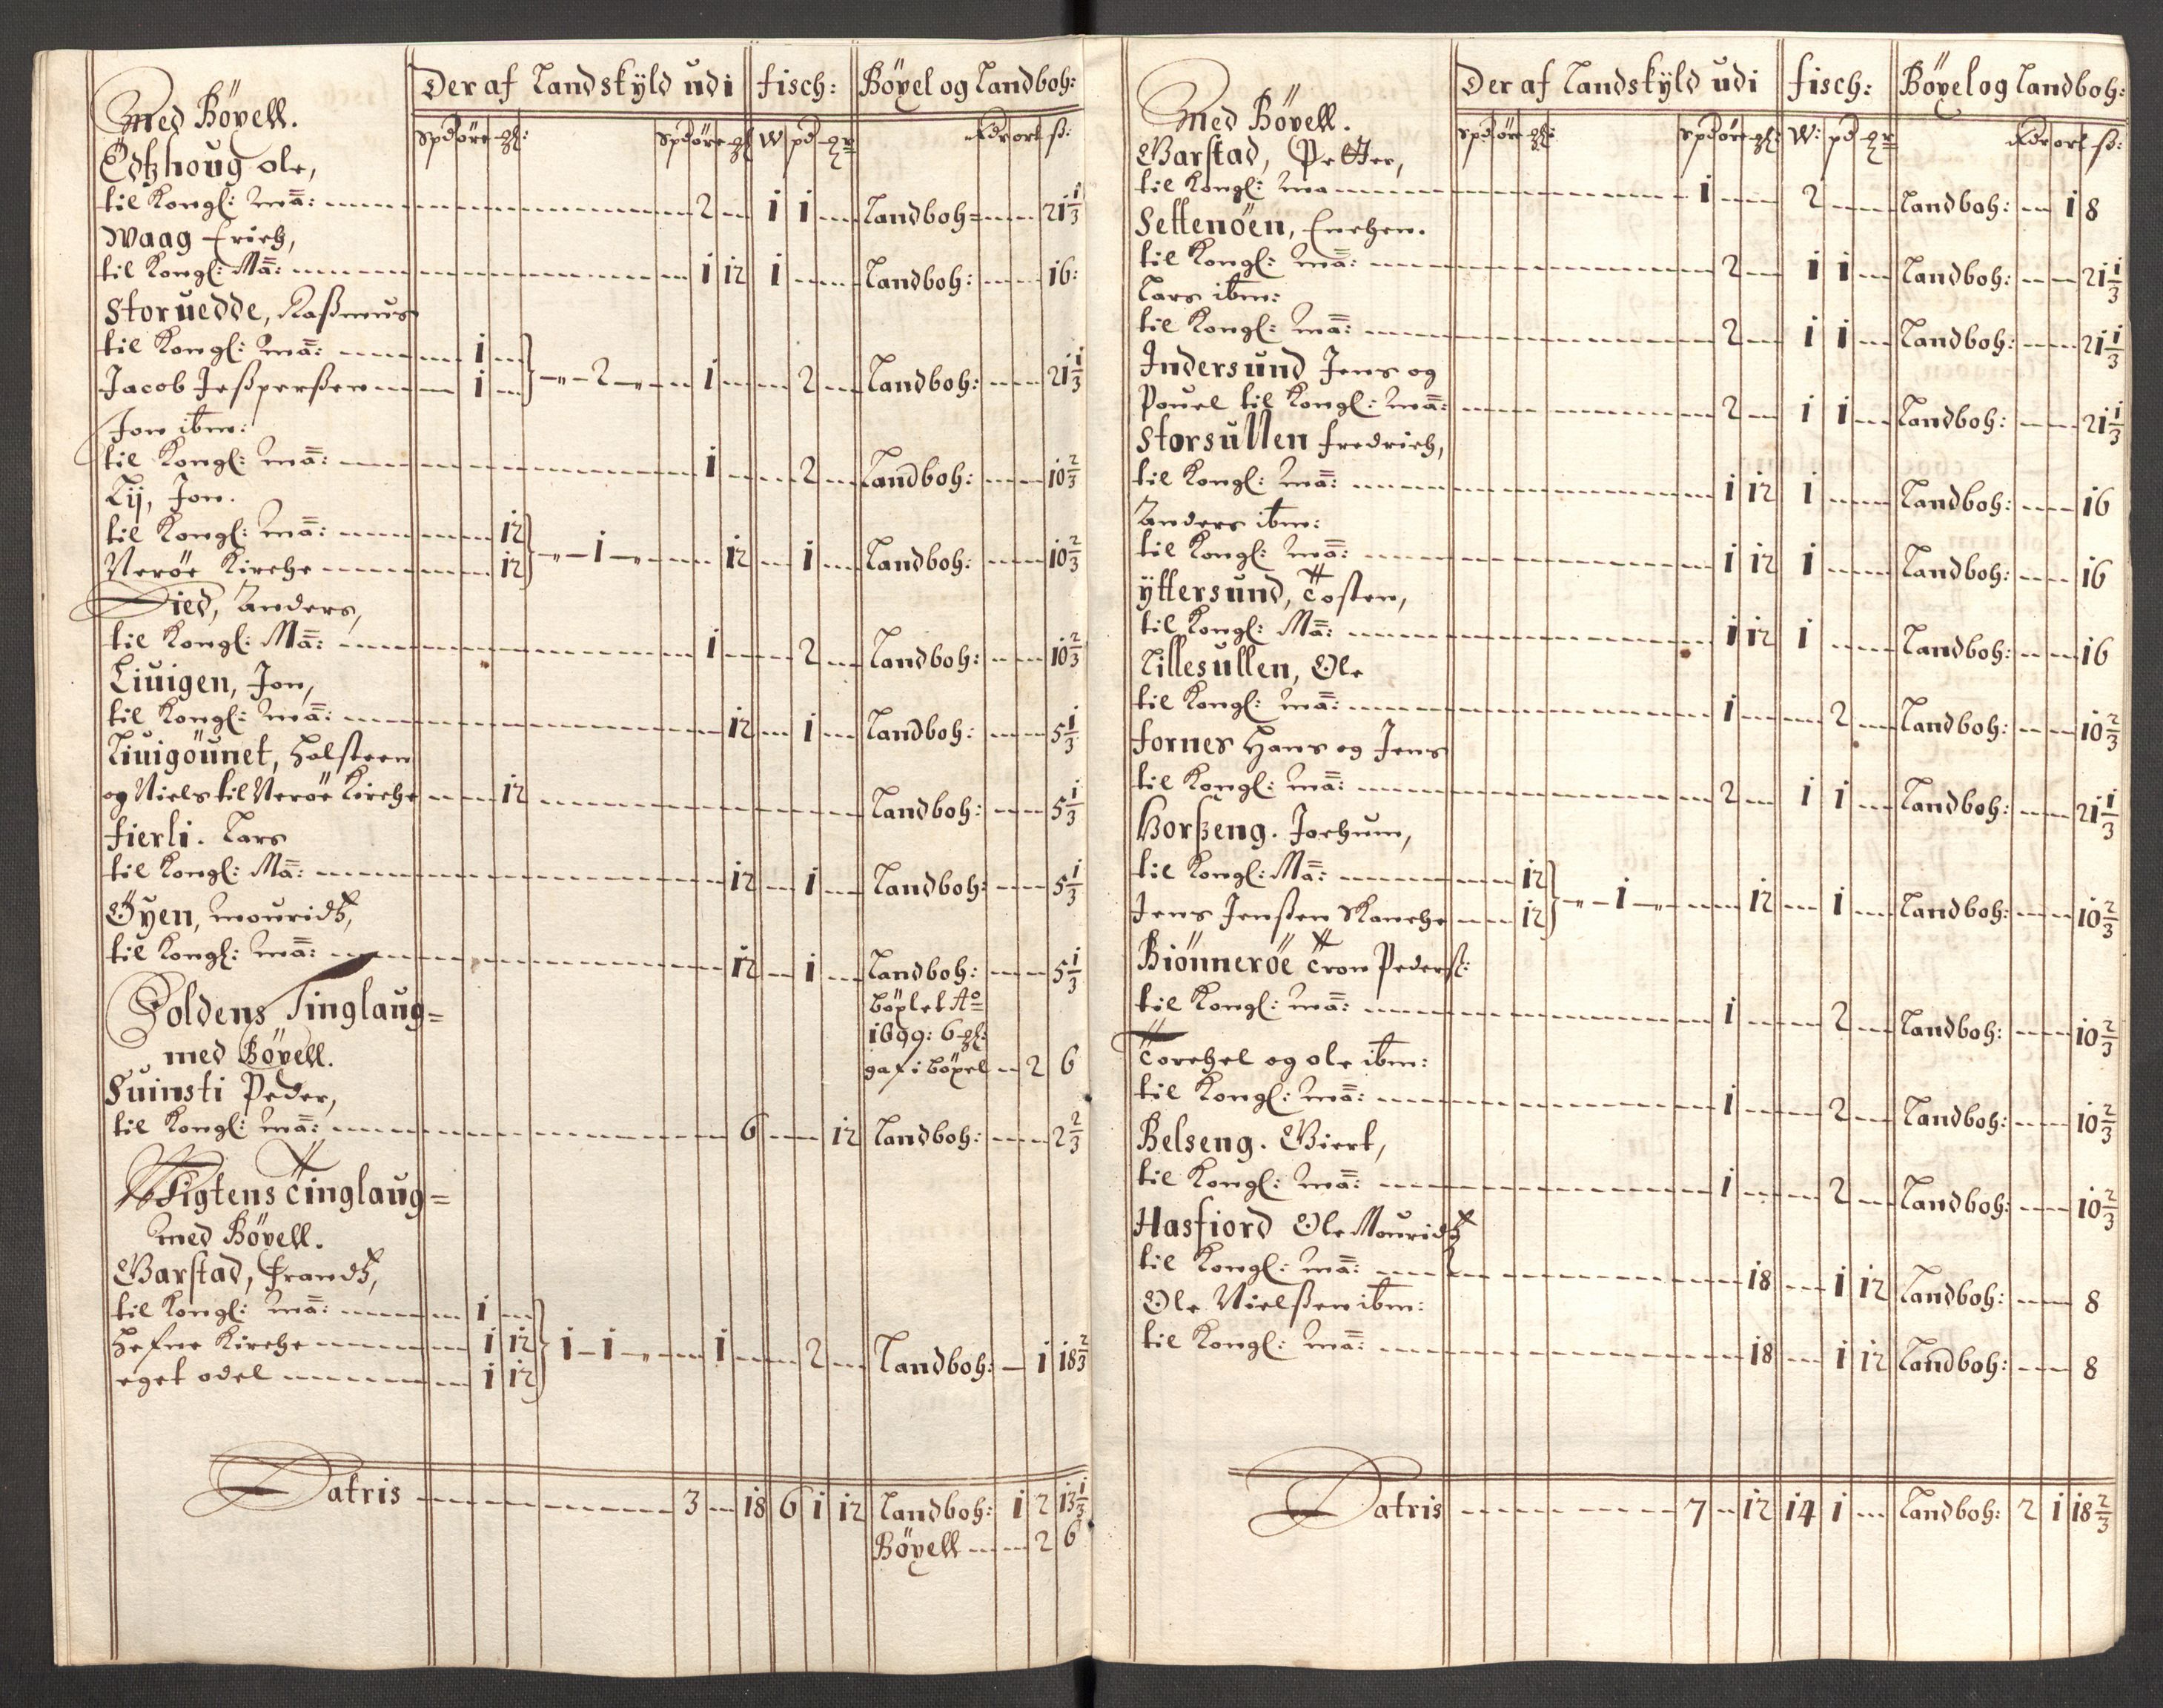 Der af Landskyld udi fisch: Böxel og Landboh:
Med Böxell.
Spd öre ql: Spd öre ql W pd qr Rdr ort ß:
Edtzhoug ole,
til Kongl: Mä: 2 1 1 Landboh: 21 1/3
Waag Erich,
til Kongl: Mä: 1 12 1 Landboh: 16:
Storuedde, Rasmus
til Kongl: Mä: 1
Jacob Jesperßen 1 } 2 1 2 Landboh: 21 1/3
Jon ibm:
til Kongl: Mä: 1 2 Landboh: 10 2/3
Lij, Jon.
til Kongl: Mä: 12
Neröe Kirche 12 } 1 12 1 Landboh: 10 2/3
Died, Anders,
til Kongl: Mä: 1 2 Landboh: 10 2/3
Liuigen, Jon,
til Kongl: Mä: 12 1 Landboh: 5 1/3
Liuigöunet, Holsteen
og Niels til Neröe Kirche 12 Landboh: 5 1/3
fierli. Lars
til Kongl: Mä: 12 1 Landboh: 5 1/3
Öyen, Mouridtz,
til Kongl: Mä: 12 1 Landboh: 5 1/3
Foldens Tinglaug= böxlet Ao
med Böxell. 1699: 6 ql:
gaf i böxel 2 6
Suinsti Peder,
til Kongl: Mä: 6 12 Landboh: 2 2/3
Wigtens Tinglaug=
med Böxell.
Garstad, Frandtz,
til Kongl: Mä: 1
Hefne Kirche 1 12 } 1 1 1 2 Landboh: 1 18 2/3
eget odel 1 12
Latris 3 18 6 1 12 Landboh: 1 2 13 1/3
Böxell 2 6
Der af Landskyld udi fisch: Böxel og Landboh:
Med Böxell.
Spd öre ql: Spd öre ql: W: pd qr Rdr ort ß:
Garstad, Petter,
til Kongl: Ma 1 2 Landboh: 1 8
Settenöen, Enchen.
til Kongl: Mä: 2 1 1 Landboh: 21 1/3
Lars ibm:
til Kongl: Mä: 2 1 1 Landboh: 21 1/3
Indersund Jens og
Pouel til Kongl: Mä: 2 1 1 Landboh: 21 1/3
Storsullen fredrich,
til Kongl: Mä: 1 12 1 Landboh: 16
Anders ibm:
til Kongl: Mä: 1 12 1 Landboh: 16
yttersund, Tosten,
til Kongl: Mä: 1 12 1 Landboh: 16
Lillesullen, Ole
til Kongl: Mä: 1 2 Landboh: 10 2/3
fornes Hans og Jens
til Kongl: Mä: 2 1 1 Landboh: 21 1/3
Horßeng. Jochum,
til Kongl: Mä: 12
Jens Jenßen Skanche 12 } 1 12 1 Landboh: 10 2/3
Biönneröe Tron Pederß:
til Kongl: Mä: 1 2 Landboh: 10 2/3
Torchel og ole ibm:
til Kongl: Mä: 1 2 Landboh: 10 2/3
Belseng. Giert,
til Kongl: Mä: 1 2 Landboh: 10 2/3
Hasfiord Ole Mouridtz
til Kongl: Mä: 18 1 12 Landboh: 8
Ole Nielßen ibm:
til Kongl: Mä: 18 1 12 Landboh: 8
Latris 7 12 14 1 Landboh: 2 1 18 2/3